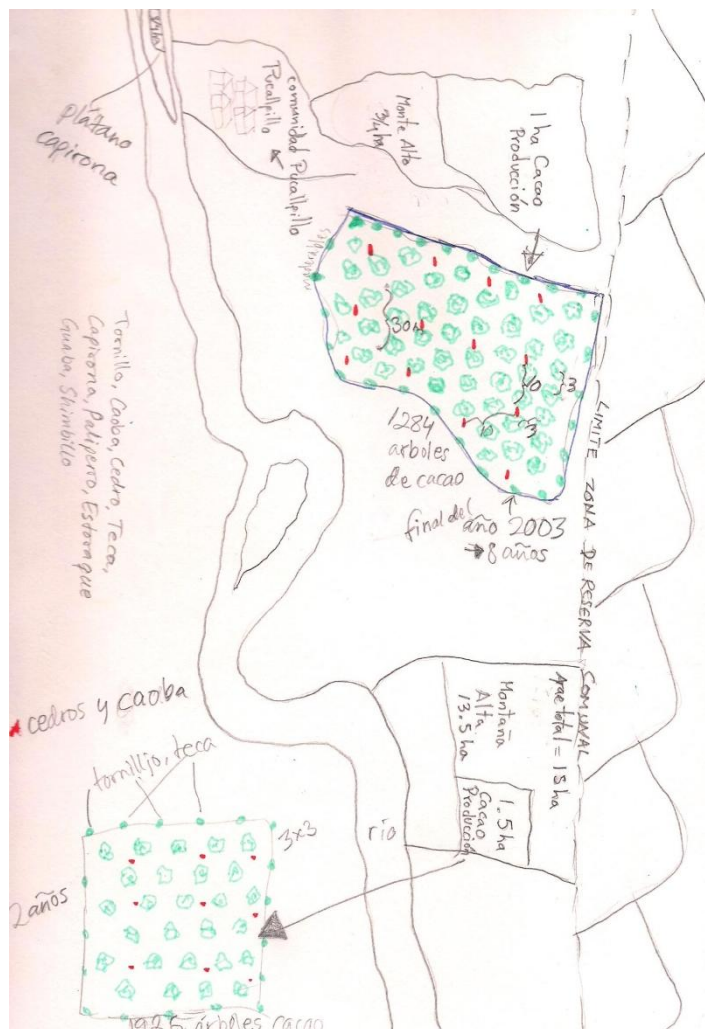 plátano
capirona
comunidad Pucallpillo
Pucallpillo
Monte Alto
3/4 ha
1 ha Cacao
Producción
maderables
30m
10
3
10
3
1284
arboles
de cacao
final del año 2003
8 años
LIMITE ZONA DE RESERVA COMUNAL
Tornillo, Caoba, Cedro, Teca,
Capirona, Paliperro, Estoraque
Guaba, Shimbillo
cedros y caoba
tornilljo, teca
3x3
2 años
1925 árboles cacao
río
Montaña
Alta
13.5 ha
1.5 ha
Cacao
Producción
Area total = 15 ha